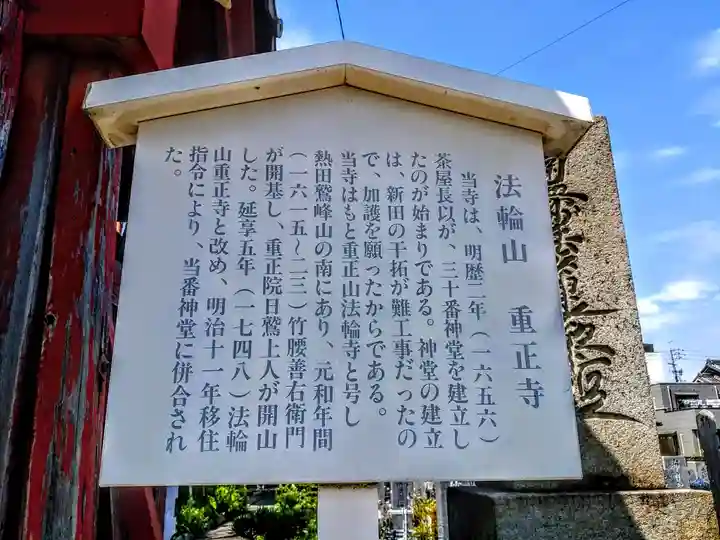 法輪山　重正寺
当寺は、明暦二年（一六五六）
茶屋長以が、三十番神堂を建立し
たのが始まりである。神堂の建立
は、新田の干拓が難工事だったの
で、加護を願ったからである。
当寺はもと重正山法輪寺と号し
熱田鷲峰山の南にあり、元和年間
（一六一五〜二三）竹腰善右衛門
が開基し、重正院日鷲上人が開山
した。延享五年（一七四八）法輪
山重正寺と改め、明治十一年移住
指令により、当番神堂に併合され
た。